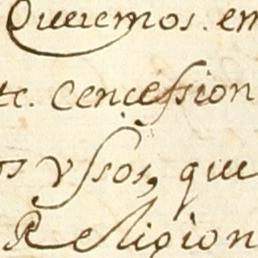 Queremos. en
te. Cencession
os ussos, que
Religion